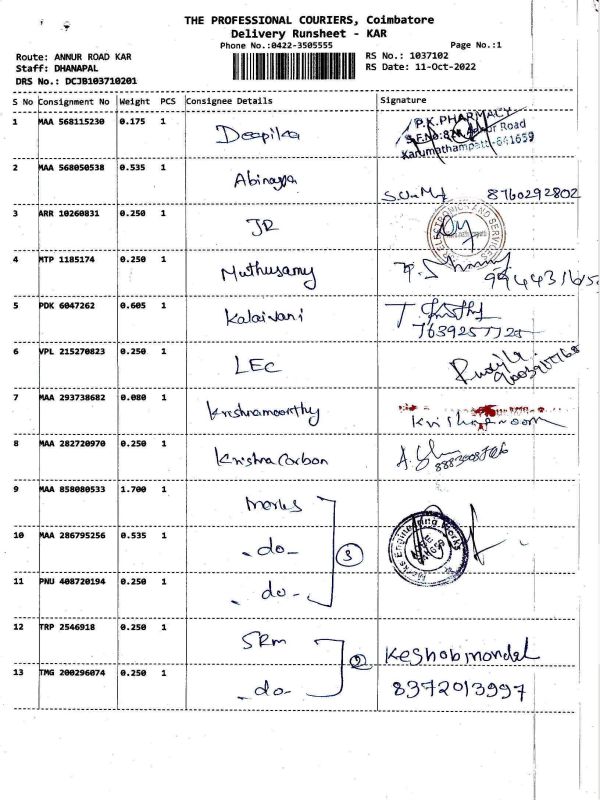 THE PROFESSIONAL COURIERS, Coimbatore
Delivery Runsheet - KAR
Phone No.:0422-3505555 Page No.:1
Route: ANNUR ROAD KAR RS No.: 1037102
Staff: DHANAPAL RS Date: 11-Oct-2022
DRS No.: DCJB103710201
S No Consignment No Weight PCS Consignee Details Signature
1 MAA 568115230 0.175 1 Deepika P.K.PHARMACY
Road
Karumathampatti-641659
2 MAA 568050538 0.535 1 Abinaya 8760292802
3 ARR 10260831 0.250 1 JR ELECTRONICS AND SERVICES
4 MTP 1185174 0.250 1 Muthusamy
5 PDK 6047262 0.605 1 Kalaivani
7639257725
6 VPL 215270823 0.250 1 LEC
7 MAA 293738682 0.080 1 Krishnamoorthy
8 MAA 282720970 0.250 1 Krishna Carbon
9 MAA 858080533 1.700 1 Marks
10 MAA 286795256 0.535 1 -do- 3 Engineering Works
11 PNU 408720194 0.250 1 -do-
12 TRP 2546918 0.250 1 SRM 2 Keshob mondal
13 TMG 200296074 0.250 1 -do- 8372013997